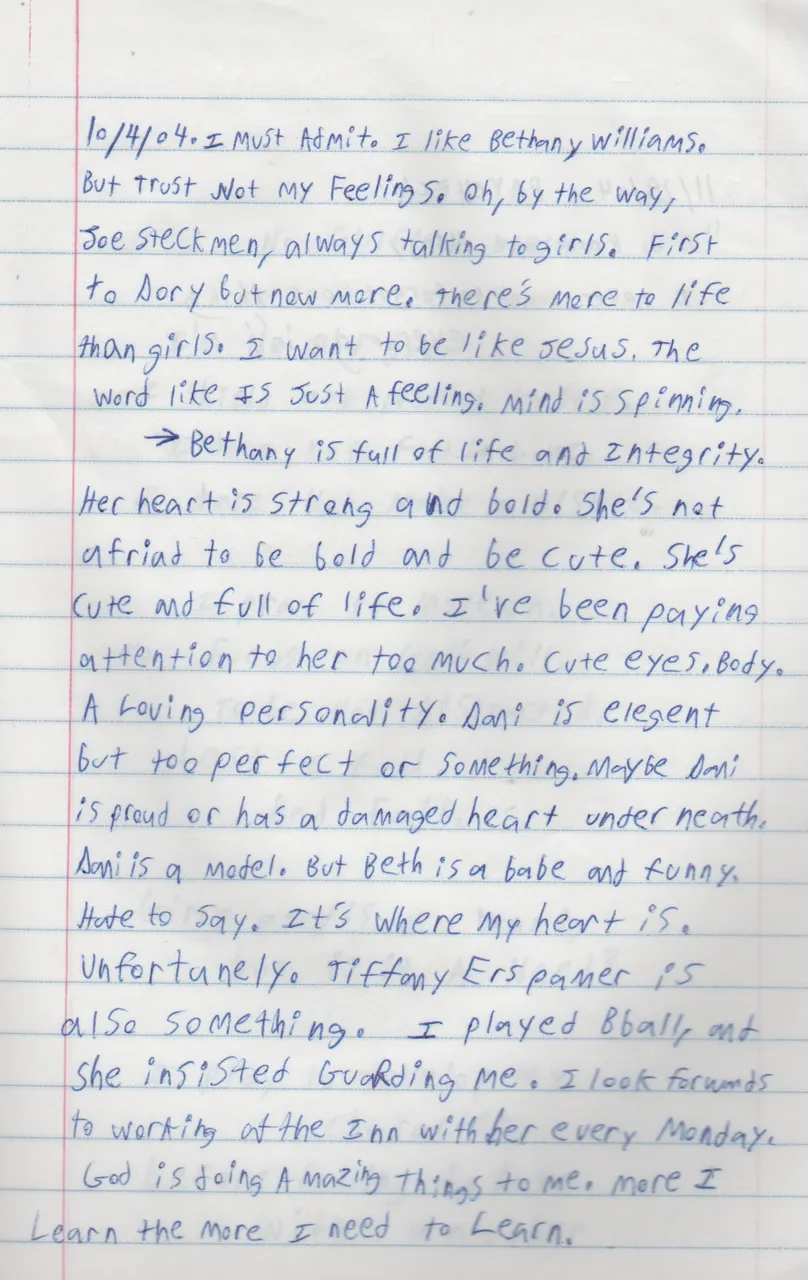 10/4/04. I Must Admit. I like Bethany Williams.
But Trust Not My Feelings. Oh, by the way,
Joe Steckmen, always talking to girls. First
to Dory but now more. There's more to life
than girls. I want to be like Jesus. The
word like Is Just A feeling. Mind is spinning.
→ Bethany is full of life and Integrity.
Her heart is strong and bold. She's not
afriad to be bold and be cute. She's
cute and full of life. I've been paying
attention to her too much. Cute eyes, Body.
A Loving personality. Dani is elegent
but too perfect or something. Maybe Dani
is proud or has a damaged heart under neath.
Dani is a model. But Beth is a babe and funny.
Hate to say. It's where my heart is.
Unfortunely. Tiffany Erspamer is
also something. I played Bball, and
she insisted Guarding me. I look forwards
to working at the Inn with her every Monday.
God is doing Amazing things to me. more I
Learn the more I need to Learn.